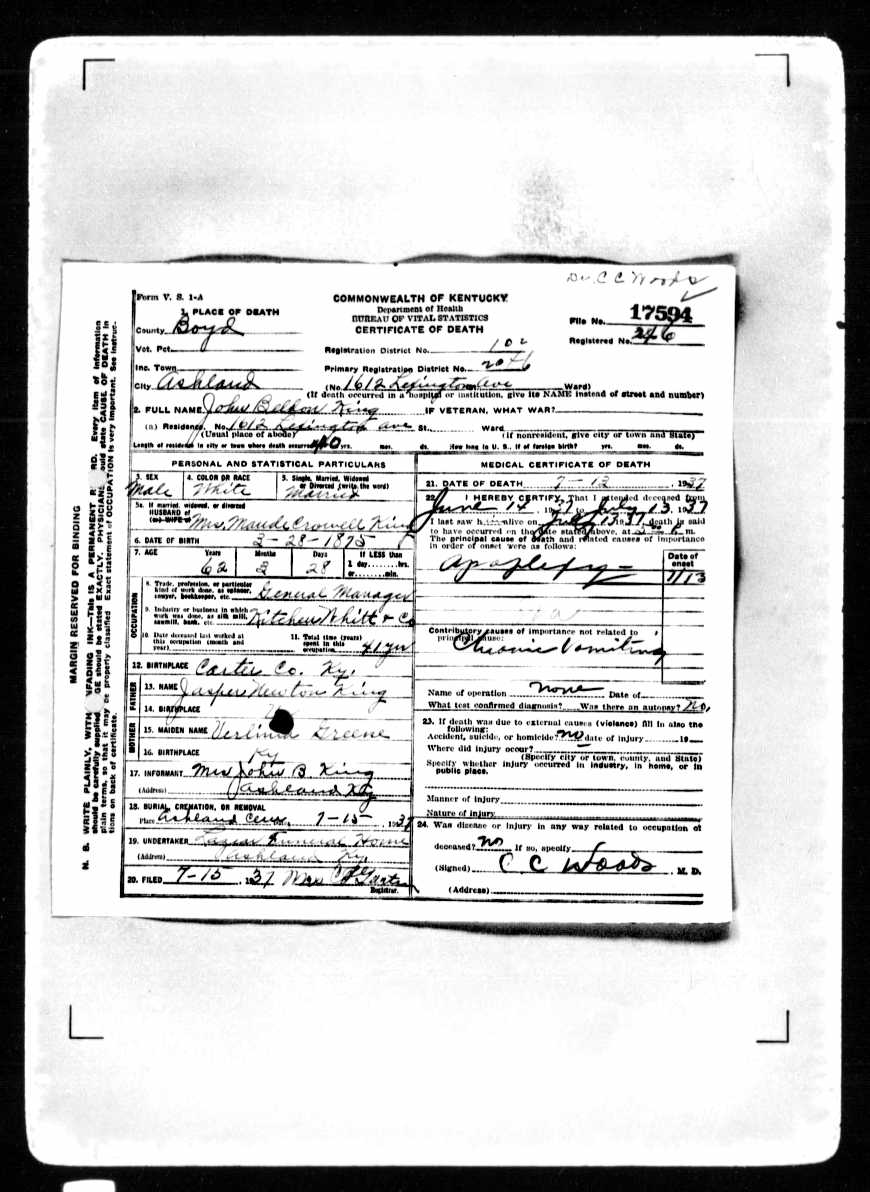 Dr. C C Woods
Form V. S. 1-A
1. PLACE OF DEATH
County Boyd
Vot. Pct.
Inc. Town
City Ashland
COMMONWEALTH OF KENTUCKY
Department of Health
BUREAU OF VITAL STATISTICS
CERTIFICATE OF DEATH
File No. 17594
Registered No. 246
Registration District No. 102
Primary Registration District No. 2046
(No. 1612 Lexington Ave Ward)
(If death occurred in a hospital or institution, give its NAME instead of street and number)
2. FULL NAME John Beldon King IF VETERAN, WHAT WAR?
(a) Residence. No. 1612 Lexington Ave St., Ward
(Usual place of abode) (If nonresident, give city or town and State)
Length of residence in city or town where death occurred 40 yrs. mos. ds. How long in U. S., if of foreign birth? yrs. mos. ds.
PERSONAL AND STATISTICAL PARTICULARS
3. SEX Male
4. COLOR OR RACE White
5. Single, Married, Widowed or Divorced (write the word) Married
5a. If married, widowed, or divorced
HUSBAND of
(or) WIFE of Mrs. Maude Crowell King
6. DATE OF BIRTH 3-28-1875
7. AGE Years Months Days If LESS than
62 28 1 day hrs.
or min.
OCCUPATION
8. Trade, profession, or particular
kind of work done, as spinner,
sawyer, bookkeeper, etc. General Manager
9. Industry or business in which
work was done, as silk mill,
sawmill, bank, etc. Kitchen Whitt & Co
10. Date deceased last worked at
this occupation (month and
year)
11. Total time (years)
spent in this
occupation 41 yrs
12. BIRTHPLACE Carter Co. Ky.
FATHER
13. NAME Jasper Newton King
14. BIRTHPLACE
MOTHER
15. MAIDEN NAME Greene
16. BIRTHPLACE Ky
17. INFORMANT Mrs John B. King
(Address) Ashland Ky
18. BURIAL, CREMATION, OR REMOVAL
Place Ashland Cem. 7-15-, 1937
19. UNDERTAKER Funeral Home
(Address) Ashland Ky.
20. FILED 7-15, 1937 Mrs
Registrar.
MEDICAL CERTIFICATE OF DEATH
21. DATE OF DEATH 7-13, 1937
22. I HEREBY CERTIFY, That I attended deceased from
June 14, 1937 to July 13, 1937
I last saw h alive on July 13 1937, death is said
to have occurred on the date stated above, at m.
The principal cause of death and related causes of importance
in order of onset were as follows:
Date of
onset
Apoplexy 7/13
Contributory causes of importance not related to
principal cause:
Chronic Vomiting
Name of operation none Date of
What test confirmed diagnosis? Was there an autopsy? No.
23. If death was due to external causes (violence) fill in also the
following:
Accident, suicide, or homicide? no date of injury 19
Where did injury occur?
(Specify city or town, county, and State)
Specify whether injury occurred in industry, in home, or in
public place.
Manner of injury
Nature of injury
24. Was disease or injury in any way related to occupation of
deceased? no If so, specify
(Signed) C C Woods, M. D.
(Address)
MARGIN RESERVED FOR BINDING
N. B. WRITE PLAINLY, WITH UNFADING INK—This IS A PERMANENT RECORD. Every item of information
should be carefully supplied. AGE should be stated EXACTLY. PHYSICIANS should state CAUSE OF DEATH in
plain terms, so that it may be properly classified. Exact statement of OCCUPATION is very important. See instruc-
tions on back of certificate.